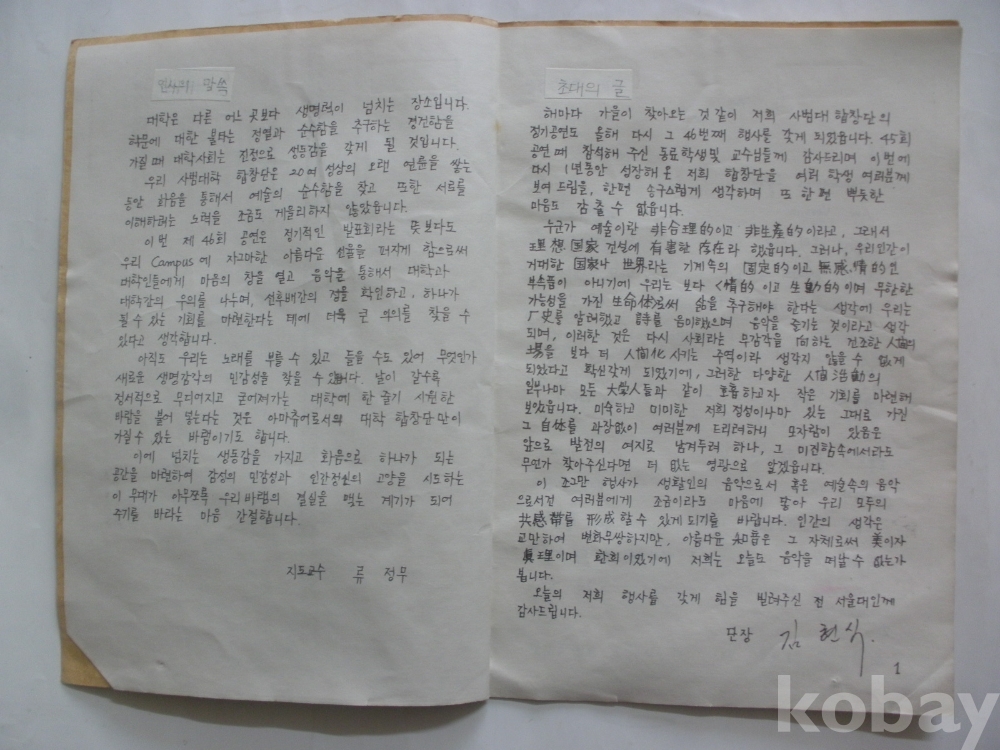 인사의 말씀
대학은 다른 어느 곳보다 생명력이 넘치는 장소입니다.
학문에 대한 불타는 정열과 순수함을 추구하는 경건함을
가질 때 대학사회는 진정으로 생동감을 갖게 될 것입니다.
우리 사범대학 합창단은 20여 성상의 오랜 연륜을 쌓는
동안 화음을 통해서 예술의 순수함을 찾고 또한 서로를
이해하려는 노력을 조금도 게을리하지 않았읍니다.
이번 제 46회 공연은 정기적인 발표회라는 뜻보다도
우리 Campus에 자그마한 아름다운 선율을 퍼지게 함으로써
대학인들에게 마음의 창을 열고 음악을 통해서 대학과
대학간의 우의를 나누며, 선후배간의 정을 확인하고, 하나가
될 수 있는 기회를 마련한다는 데에 더욱 큰 의의를 찾을 수
있다고 생각합니다.
아직도 우리는 노래를 부를 수 있고 들을 수도 있어 무엇인가
새로운 생명감각의 민감성을 찾을 수 있읍니다. 날이 갈수록
정서적으로 무디어지고 굳어져가는 대학에 한 줄기 시원한
바람을 불어 넣는다는 것은 아마츄어로서의 대학 합창단만이
가질 수 있는 바램이기도 합니다.
이에 넘치는 생동감을 가지고 화음으로 하나가 되는
공간을 마련하여 감성의 민감성과 인간정신의 고양을 시도하는
이 무대가 아무쪼록 우리 바램의 결실을 맺는 계기가 되어
주기를 바라는 마음 간절합니다.
지도교수 류 정무
초대의 글
해마다 가을이 찾아오는 것 같이 저희 사범대 합창단의
정기공연도 올해 다시 그 46번째 행사를 갖게 되었읍니다. 45회
공연때 참석해 주신 동료학생및 교수님들께 감사드리며 이번에
다시 1년동안 성장해 온 저희 합창단을 여러 학생 여러분께
보여 드림을, 한편 송구스럽게 생각하며 또 한편 뿌듯한
마음도 감출 수 없읍니다.
누군가 예술이란 非合理的이고 非生產的이라고, 그래서
理想国家 건설에 有害한 存在라 했읍니다. 그러나, 우리인간이
거대한 国家나 世界라는 기계속의 固定的이고 無感情的인
부속품이 아니기에 우리는 보다 情的이고 生動的이며 무한한
가능성을 가진 生命体로써 삶을 추구해야 한다는 생각에 우리는
历史를 알려했고 詩를 음미했으며 음악을 즐기는 것이라고 생각
되며, 이러한 것은 다시 사회라는 무감각을 向하는 건조한 人間의
場을 보다 더 人間化 시키는 주역이라 생각지 않을 수 없게
되었다고 확신갖게 되었기에, 그러한 다양한 人間活動의
일부나마 모든 大學人들과 같이 호흡하고자 작은 기회를 마련해
보았읍니다. 미숙하고 미미한 저희 정성이나마 있는 그대로 가질
그 自体를 과장없이 여러분께 드리려하니 모자람이 있음은
앞으로 발전의 여지로 남겨두려 하나, 그 미련함속에서라도
무언가 찾아주신다면 더 없는 영광으로 알겠읍니다.
이 조그만 행사가 생활인의 음악으로서 혹은 예술속의 음악
으로서건 여러분에게 조금이라도 마음에 닿아 우리 모두의
共感帶를 形成할 수 있게 되기를 바랍니다. 인간의 생각은
교만하여 변화무쌍하지만, 아름다운 和音은 그 자체로써 美이자
眞理이며 환희이었기에 저희는 오늘도 음악을 떠날 수 없는가
봅니다.
오늘의 저희 행사를 갖게 힘을 빌려주신 전 서울대인께
감사드립니다.
단장 김 현식.
1
kobay